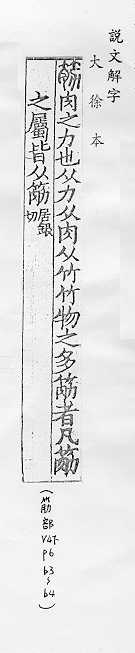 說文解字
大徐本
筋肉之力也从力从肉从竹竹物之多筋者凡筋
之屬皆从筋居銀切
(筋部 V4下 P6 b3~b4)